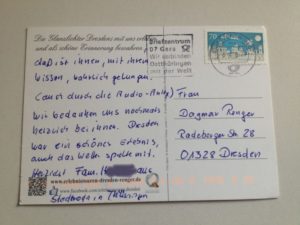 Die Glanzlichter Dresdens mit uns erleben
und als schöne Erinnerung bewahren
daß ist ihnen, mit ihrem
Wissen, wahrlich gelungen.
(auch durch die Audio-Rally)
Wir bedanken uns nochmals
herzlich bei ihnen. Dresden
war ein schönes Erlebnis,
auch das Wetter spielte mit.
Herzlichst Fam. H
www.erlebnistouren-dresden-renger.de
www.facebook.com/
Stadtroda in Thüringen
Briefzentrum
07 Gera
Wir verbinden
Ostthüringen
mit der Welt
70
Frau
Dagmar Renger
Radeberger Str. 28
01328 Dresden